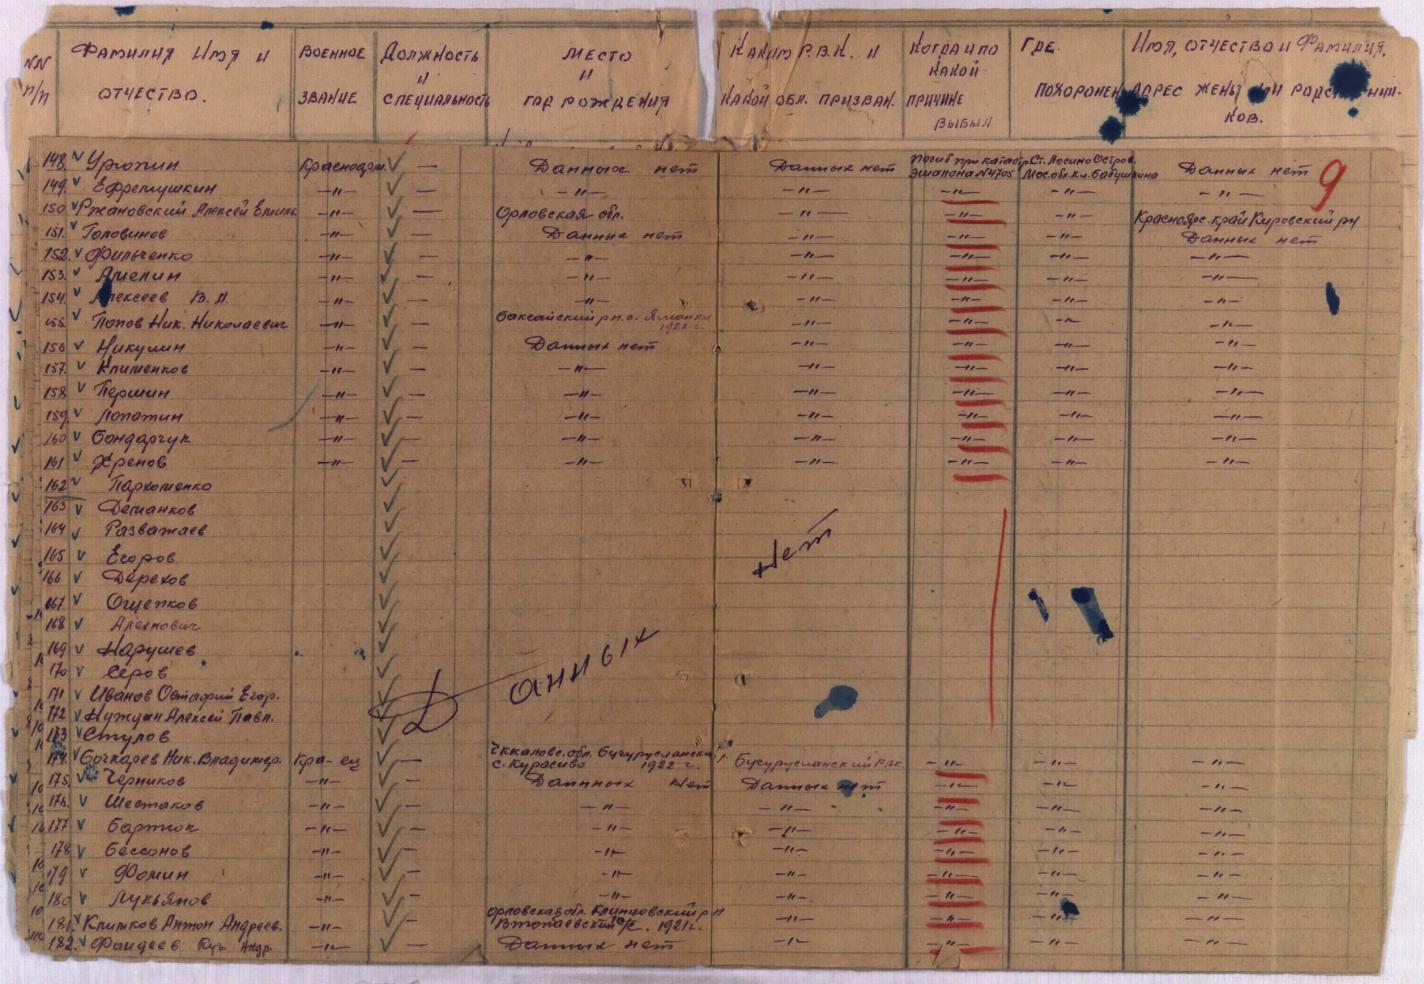 NN п/п Фамилия Имя и отчество. Военное звание Должность и специальность Место и год рождения Каким Р.В.К. и какой обл. призван. Когда и по какой причине выбыл Где похоронен Имя, отчество и Фамилия, адрес жены или родственников.
148. Урюпин Красноарм. — Данных нет Данных нет погиб при катастр. эшалона №4705 Ст. Лосино Остров. Мос. обл. кл. Бабушкина Данных нет 9
149. Ефремушкин —"— —"— —"— —"— —"— —"—
150 Ржановский Алексей —"— — Орловская обл. —"— —"— —"— Красноярс. край Кировский рн
151. Головинов —"— — Данных нет —"— —"— —"— Данных нет
152. Фильченко —"— — —"— —"— —"— —"— —"—
153. Амелин —"— — —"— —"— —"— —"— —"—
154. Алексеев В. —"— — —"— —"— —"— —"— —"—
155. Попов Ник. Николаевич —"— — 1922 г. —"— —"— —"— —"—
156 Никулин —"— — Данных нет —"— —"— —"— —"—
157. Клименков —"— — —"— —"— —"— —"— —"—
158 Першин —"— — —"— —"— —"— —"— —"—
159. Лопатин —"— — —"— —"— —"— —"— —"—
160 Бондарчук —"— — —"— —"— —"— —"— —"—
161 Хренов —"— — —"— —"— —"— —"— —"—
162 Пархоменко
163 Деманков
164 Разважаев
165 Егоров
166 Дерехов
167 Ощепков
168
169 Нарушев
170 Серов
171 Иванов Егор.
172 Нуждин Алексей Павл.
173 Стулов
Данных нет
174. Бочкарев Ник. Владимер. Кра-ец — Чккаловс. обл. Бугурусланский с. Курасиво 1922 г. Бугурусланский Рвк —"— —"— —"—
175. Черников —"— — Данных нет Данных нет —"— —"— —"—
176. Шестаков —"— — —"— —"— —"— —"— —"—
177 —"— — —"— —"— —"— —"— —"—
178 Бессонов —"— — —"— —"— —"— —"— —"—
179 Фомин —"— — —"— —"— —"— —"— —"—
180 Лукьянов —"— — —"— —"— —"— —"— —"—
181. Климков Антон Андреев. —"— — Орловская обл. Клинцовский р-н 1921 г. —"— —"— —"— —"—
182. Андр. —"— — Данных нет —"— —"— —"— —"—